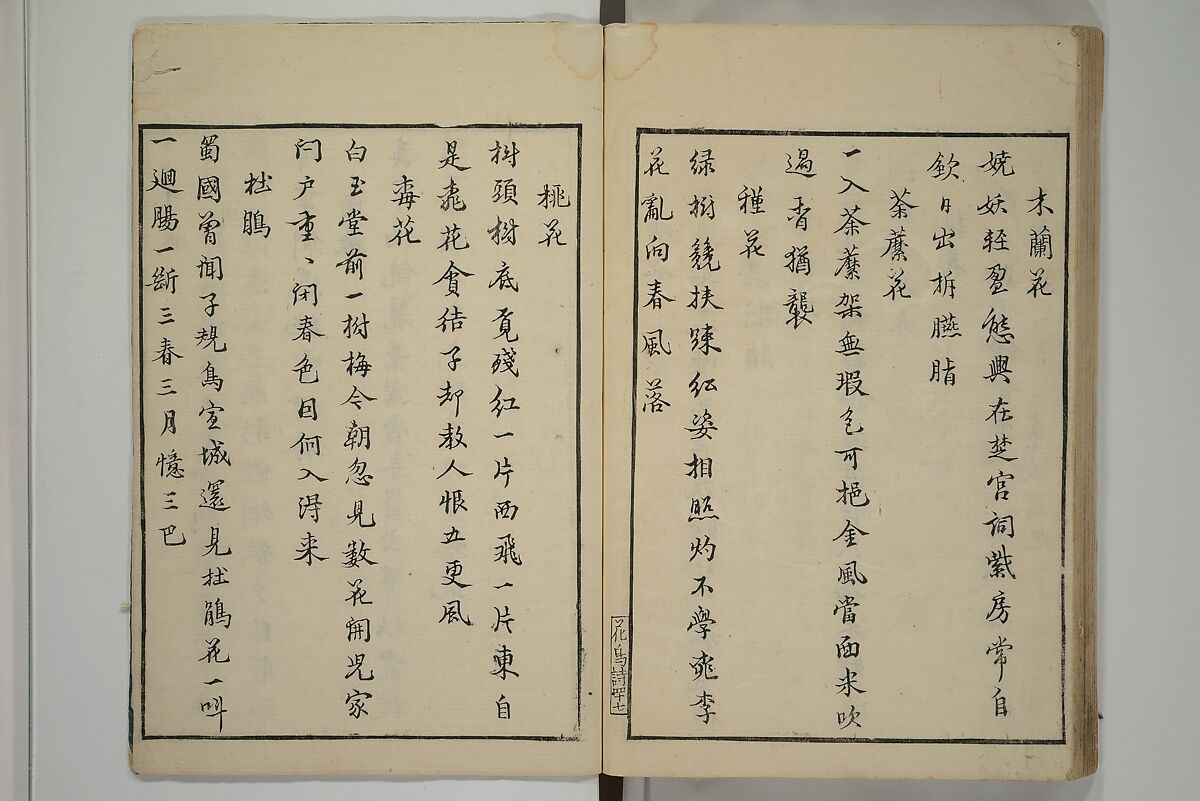 木蘭花
嬈妖輕盈態興在楚宮詞紫房常自
歛日出拆臙脂
荼蘼花
一入荼蘼架無瑕色可挹金風當面来吹
過香猶襲
種花
绿樹競扶踈红姿相照灼不學桃李
花亂向春風落
桃花
樹頭樹底覓殘红一片西飛一片東自
是桃花貪结子却教人恨五更風
梅花
白玉堂前一樹梅今朝忽見數花開児家
门户重〻闭春色因何入得来
杜鵑
蜀國曾闻子規鳥宣城還見杜鵑花一叫
一廻腸一斷三春三月憶三巴
花鳥詩四十七